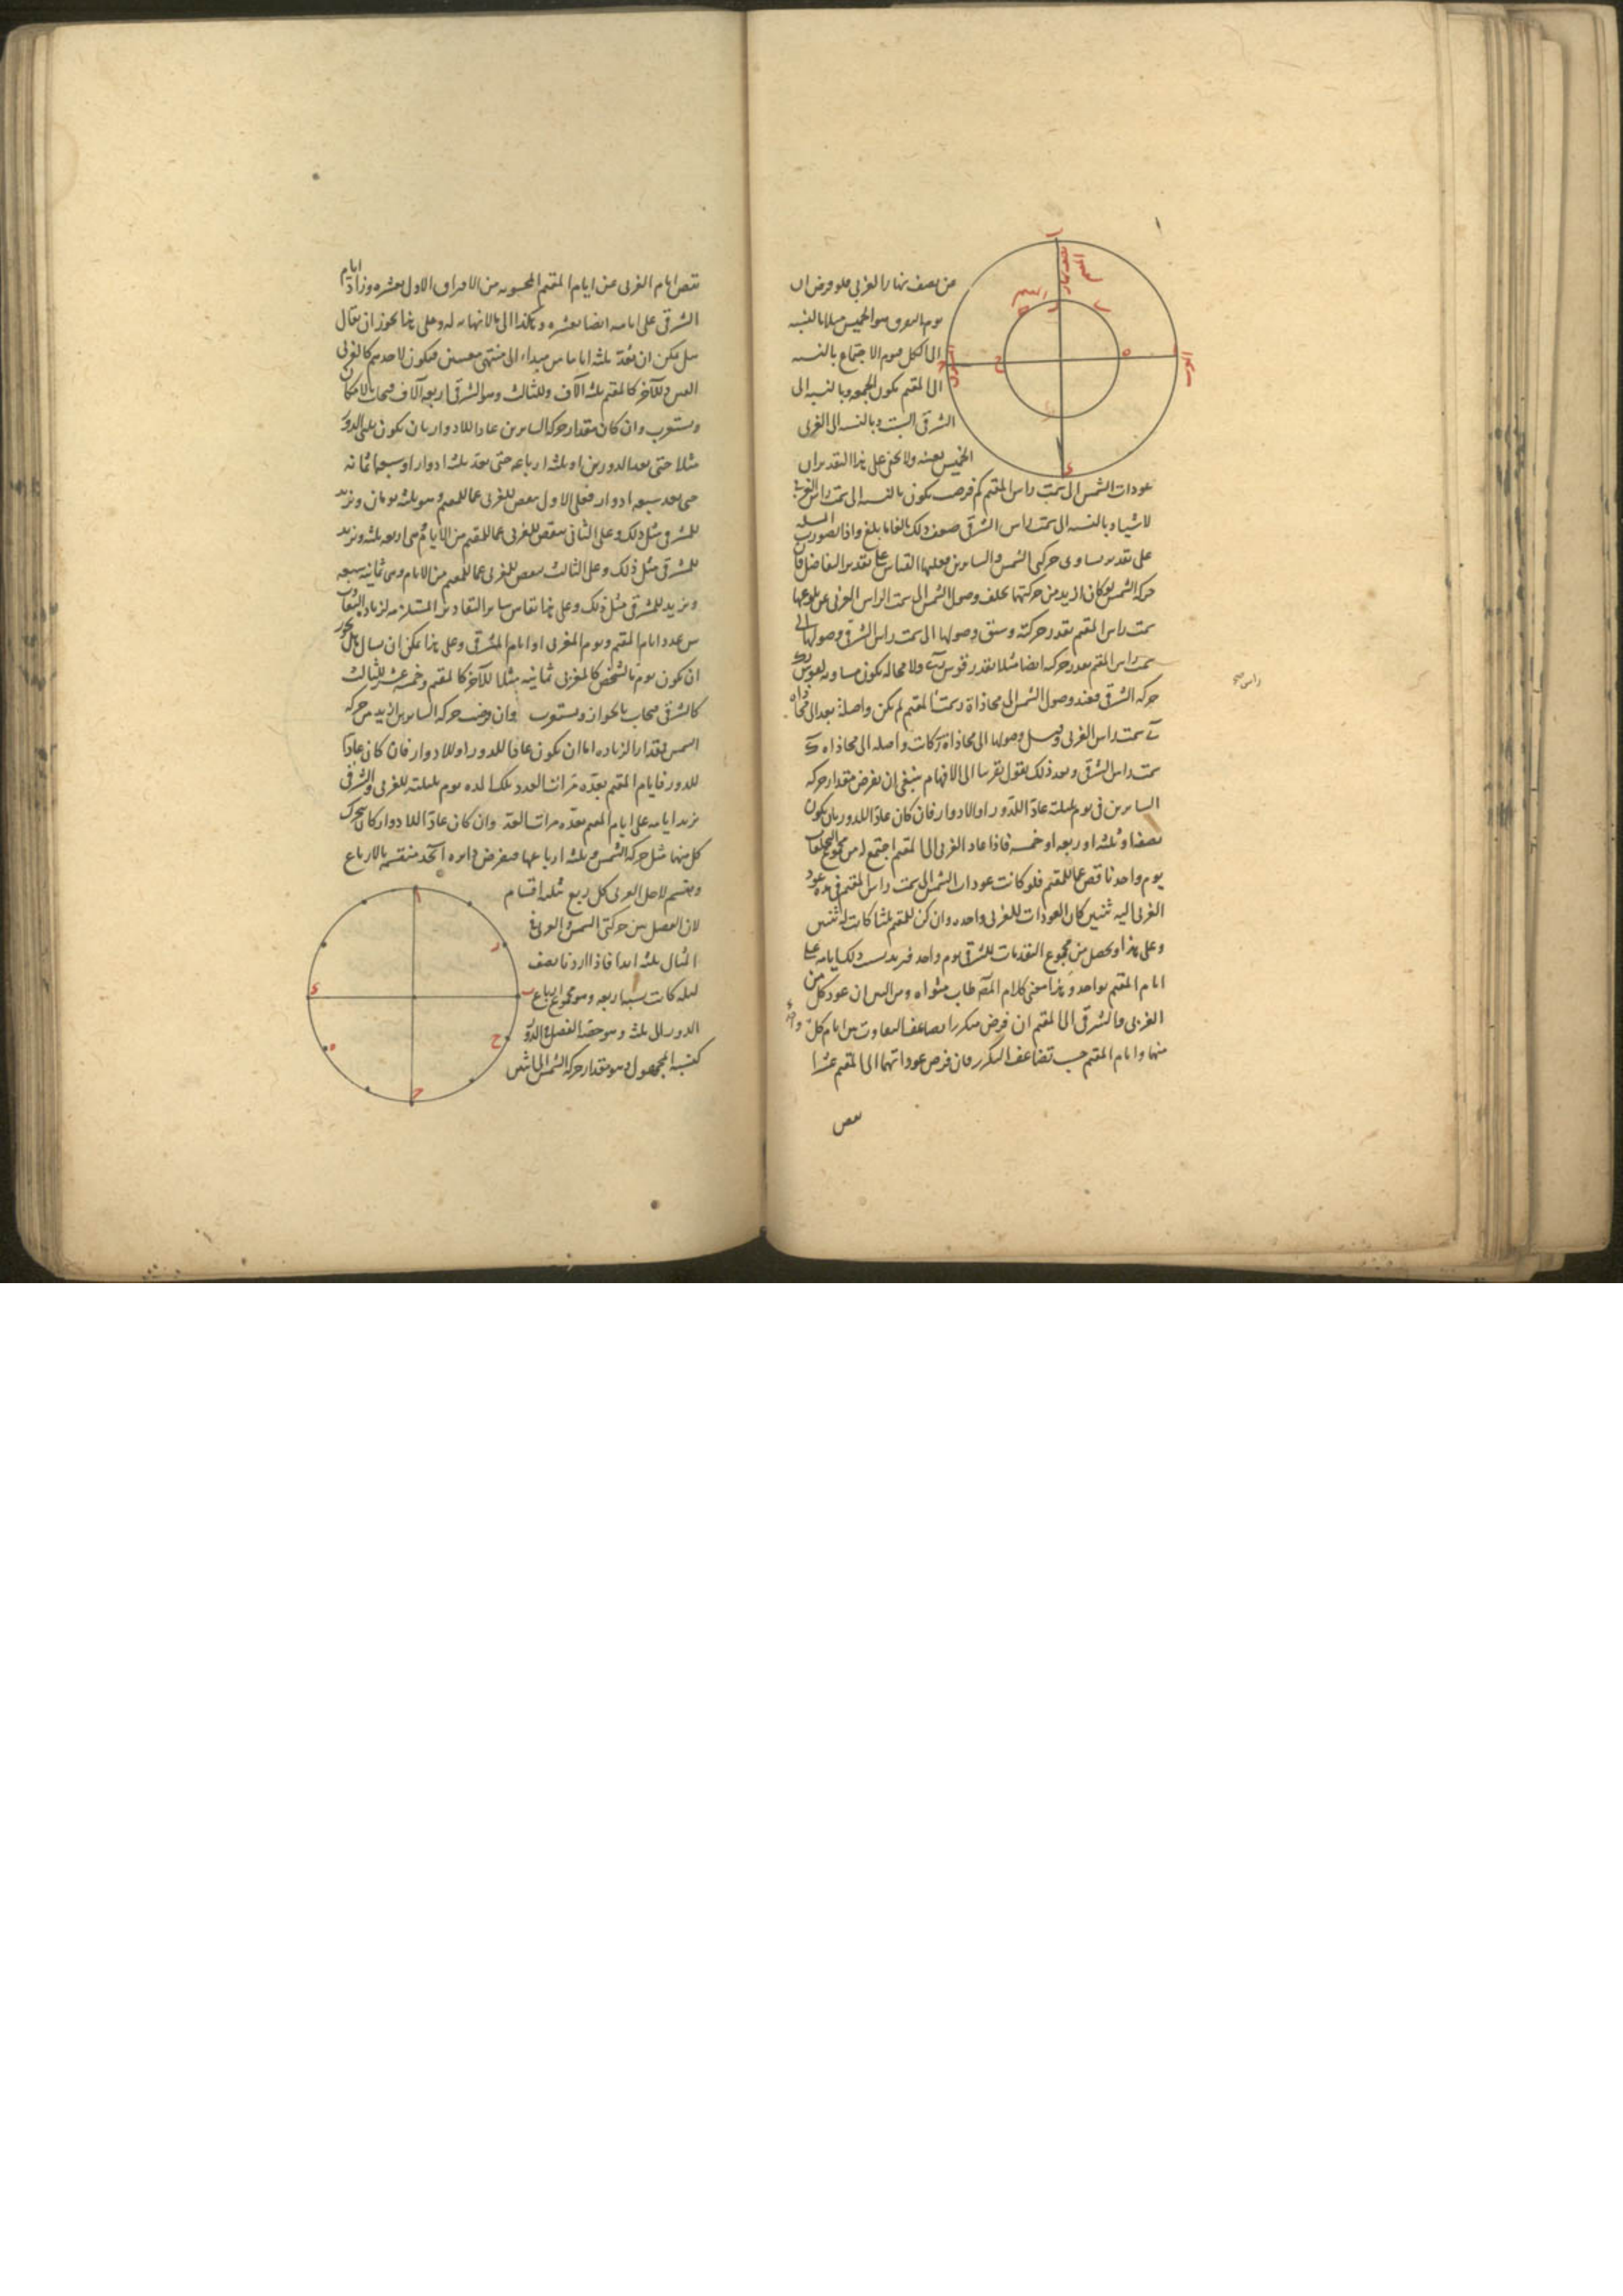 من نصف نهار الغربي فلو فرض ان
يوم التفرق هو الخميس مثلا بالنسبة
الى الكل فيوم الاجتماع بالنسبة
الى المقيم يكون الجمعه وبالنسبه الى
الشرقي السبت وبالنسبه الى الغربي
الخميس بعينه ولا يخفى على هذا التقدير ان
عودات الشمس الى سمت راس المقيم كم فرضت يكون بالنسبه الى سمت راس الغربي
لا شيئا وبالنسبه الى سمت راس الشرقي ضعف ذلك بالغا ما بلغ واذا تصورت
على تقدير تساوى حركتي الشمس والسايرين فعليها القياس على تقدير التفاضل فان
حركة الشمس لو كان ازيد من حركتها تخلف وصول الشمس الى سمت الراس الغربي عن بلوغها
سمت راس المقيم بقدر حركته وسبق وصولها الى سمت راس الشرقي وصولها الى
سمت راس المقيم بقدر حركه ايضا مثلا بقدر قوس ولا محاله يكون مساويه لقوس
حركه الشرقي فعند وصول الشمس الى محاذاة سمت المقيم لم يكن واصلة بعد الى محاذاة
سمت راس الغربي وقبل وصولها الى محاذاة كانت واصله الى محاذاه
سمت راس الشرقي وبعد ذلك نقول تقريبا الى الافهام ينبغي ان يفرض مقدار حركه
السايرين في يوم بليلته عادّا للدّور او الادوار فان كان عادّا للدور بان يكون
نصفا او ثلثا او ربعه او خمسه فاذا عاد الغربي الى المقيم اجتمع له من مجموع التخلفات
يوم واحد ناقص عما للمقيم فلو كانت عودات الشمس الى سمت راس المقيم في مدة عود
الغربي اليه ثنتين كان العودات للغربي واحده وان كن للمقيم ثلثا كانت له ثنتين
وعلى هذا ويحصل من مجموع التقدمات للشرقي يوم واحد فيزيد بسبب ذلك ايامه على
ايام المقيم بواحد وهذا معنى كلام المصـ طاب مثواه ومن البين ان عود كل من
الغربي والشرقي الى المقيم ان فرض متكررا يضاعف التفاوت بين ايام كلّ
منها وايام المقيم حسب تضاعف التكرر فان فرض عوداتهما الى المقيم عشرا
راس صح
نقص
نقص ايام الغربي عن ايام المقيم المحسوبه من الافتراق الاول بعشره وزاد ايام
الشرقي على ايامه ايضا بعشره وهكذا الى ما لا نهايه له وعلى هذا يجوز ان يقال
هل يمكن ان يعدّ ثلثه اياما من مبداء الى منتهى معينين فيكون لاحدهم كالغربي
الفين وللآخر كالمقيم ثلثه آلاف وللثالث وهو الشرقي اربعه آلاف فيجاب بالامكان
ويستغرب وان كان مقدار حركه السايرين عادا للادوار بان يكون ثلثي الدور
مثلا حتى يعد الدورين او ثلثه ارباعه حتى يعد ثلثه ادوار او سبعه اثمانه
حتى يعد سبعه ادوار فعلى الاول ينقص للغربي عما للمقيم وهو ثلثه يومان ويزيد
للشرقي مثل ذلك وعلى الثاني ينقص للغربي عما للمقيم من الايام هي اربعه ثلثه ويزيد
للشرقي مثل ذلك وعلى الثالث ينقص للغربي عما للمقيم من الايام وهي ثمانيه سبعه
ويزيد للشرقي مثل ذلك وعلى هذا تقاس ساير التقادير المستلزمه لزياده التفاوت
بين عدد ايام المقيم ويوم المغربي او ايام المشرقي وعلى هذا يمكن ان يسال هل يجوز
ان يكون يوم بالشخص كالمغربي ثمانيه مثلا للآخر كالمقيم وخمسه عشر للثالث
كالشرقي فيجاب بالجواز ويستغرب وان فرضت حركه السايرين ازيد من حركه
الشمس فمقدار الزياده اما ان يكون عادّا للدور او للادوار فان كان عادّا
للدور فايام المقيم بعدّه مرات العدد تلك المده يوم بليلته للغربي والشرقي
يزيد ايامه على ايام المقيم بعدّه مرات العد وان كان عادّا للادوار كان يتحرك
كل منها مثل حركه الشمس وثلثه ارباعها فيفرض دائره ا ب ج د منقسمه بالارباع
وينقسم لاجل الغربي كل ربع ثلثه اقسام
لان الفصل بين حركتي الشمس والغربي في
المثال ثلثه ابدا فاذا اردنا نصف
ليله كانت نسبه اربعه وهو مجموع ارباع
الدور الى ثلثه وهو حصّه الفصل في الدّور
كنسبه المجهول وهو مقدار حركه الشمس الى